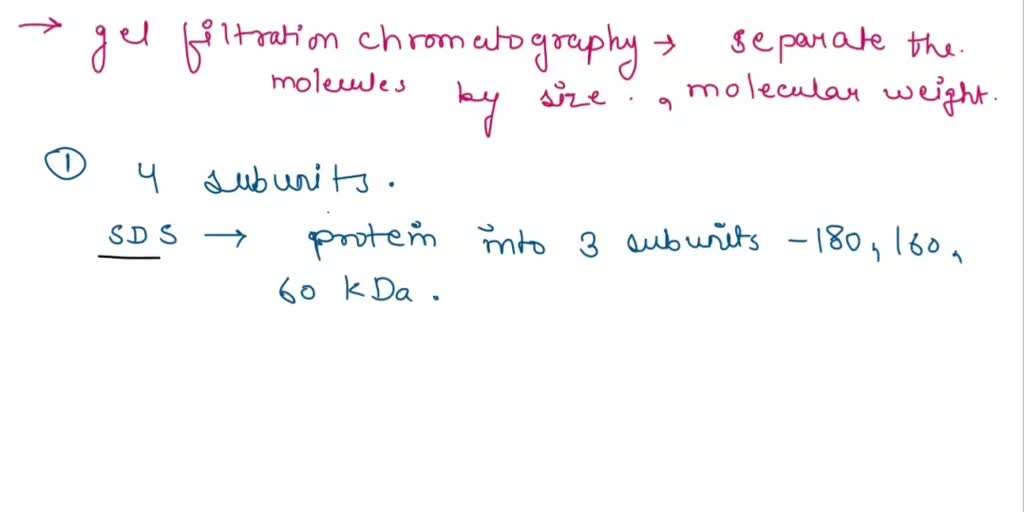 → gel filtration chromatography → separate the.
molecules by size . , molecular weight.
① 4 subunits.
SDS → protein into 3 subunits - 180, 160,
60 kDa.